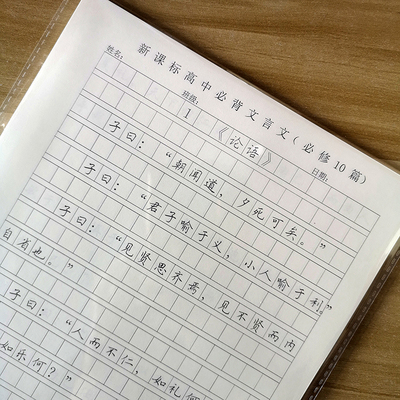 新课标高中必背文言文(必修10篇)
姓名: 班级: 日期:
1
《论语》
子曰：“朝闻道，夕死可矣。”
子曰：“君子喻于义，小人喻于利
子曰：“见贤思齐焉，见不贤而内
自省也。”
子曰：“人而不仁，如礼何
如乐何？”